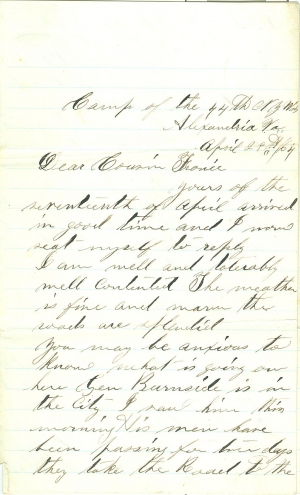 Camp of the 44th N.Y. Vols
Alexandria Va.
April 24th /64
Dear Cousin
yours of the
seventeenth of April arrived
in good time and I now
seat myself to reply
I am well and tolerably
well contented The weather
is fine and warm the
roads are splendid
You may be anxious to
know what is going on
here Gen Burnside is in
the City I saw him this
morning His men have
been passing for two days
they take the Road to the